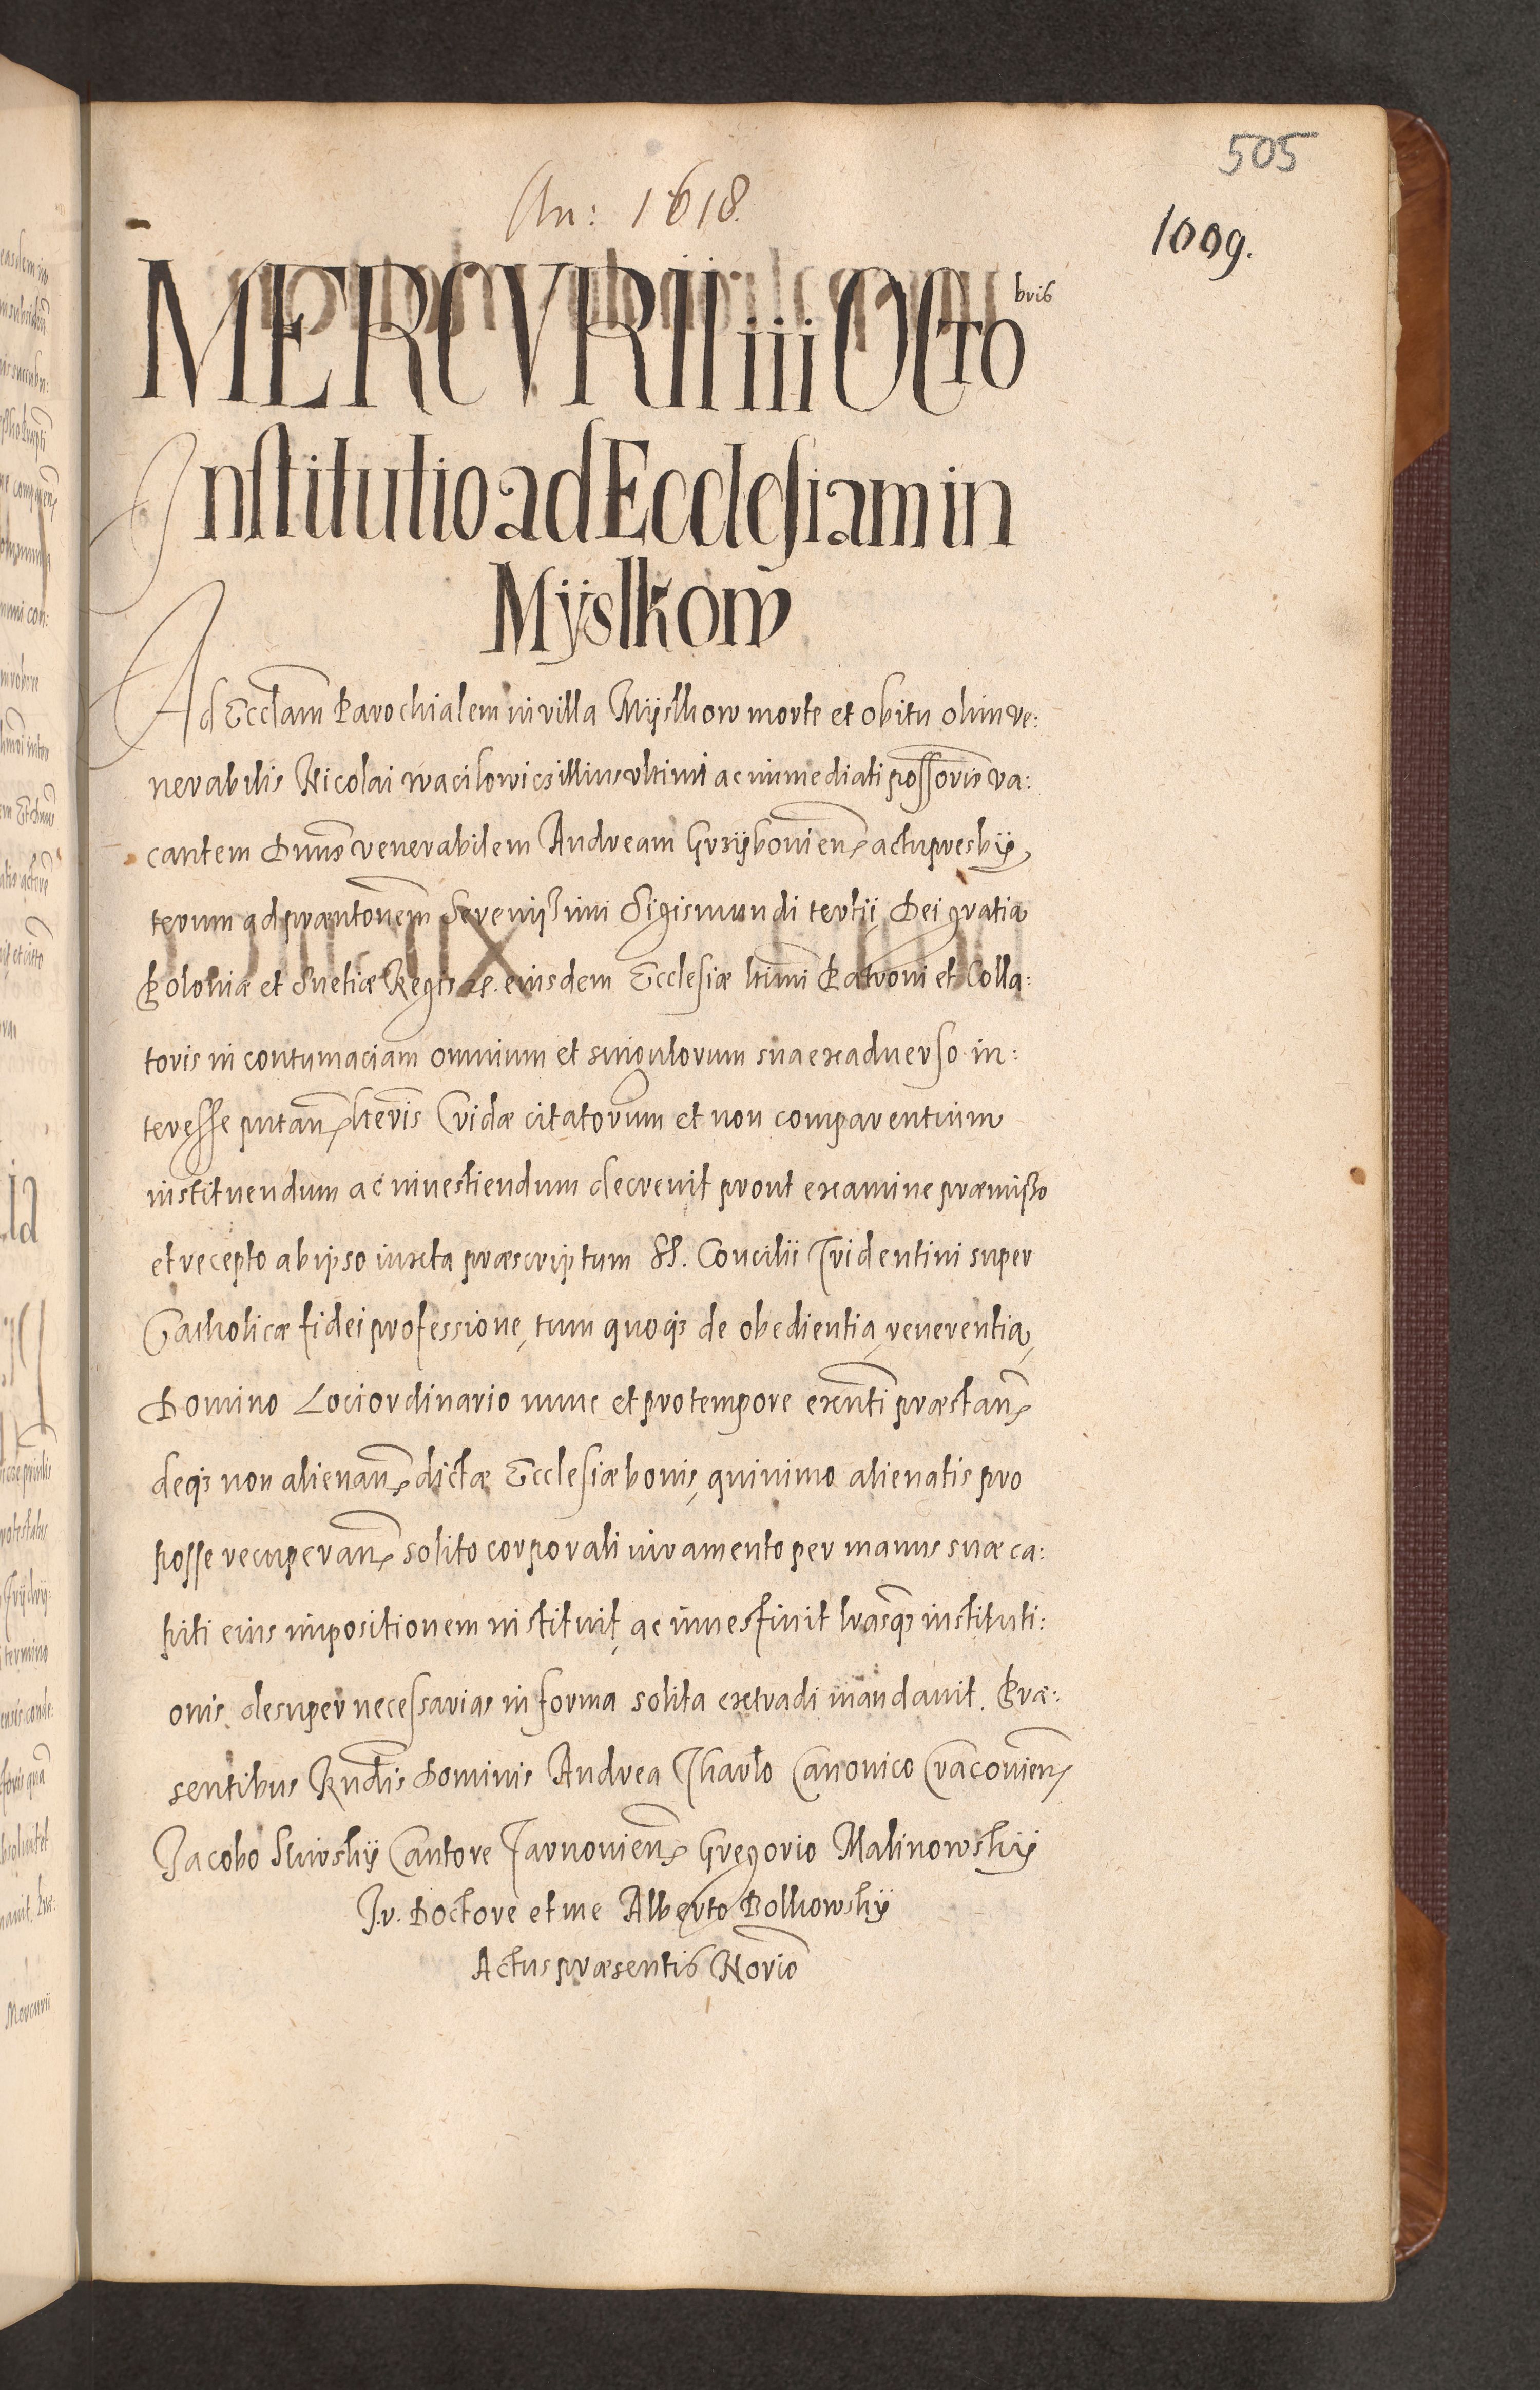 505
An: 1618.
1009.
MERCVRII iii OCTobris
Institutio ad Ecclesiam in
Mÿslkow
Ad Eccl̃am Parochialem in villa Mÿslkow morte et obitu olim ve:
nerabilis Nicolai Wacilowicz illius vltimi ac immediati poss̃oris va:
cantem Dnus̃ venerabilem Andream Grzÿbouien̄ actu presbÿ,
terum ad præntõnem Serenissimi Sigismundi tertii Dei gratia
Poloniæ et Suetiæ Regis etc. eiusdem Ecclesiæ ltimi Patroni et Colla:
toris in contumaciam omnium et singulorum sua ex aduerso in:
teresse putan̄ lteris Cridæ citatorum et non comparentium
instituendum ac inuestiendum decreuit prout examine præmisso
et recepto ab ipso iuxta præscriptum SS. Concilii Tridentini super
Catholicæ fidei professione, tum quoqȝ de obedientia, reuerentia,
Domino Loci ordinario nunc et pro tempore exñti præstan̄
deqȝ non alienan̄ dictæ Ecclesiæ bonis, quinimo alienatis pro
posse recuperan̄ solito corporali iuramento per manus suæ ca:
piti eius impositionem instituit, ac inuestiuit lrasqȝ instituti:
onis desuper necessarias in forma solita extradi mandauit. Præ:
sentibus Rndis̃ Dominis Andrea Charlo Canonico Cracouien̄
Jacobo Skirskÿ Cantore Tarnouien̄ Gregorio Malinowskÿ
J. v. Doctore et me Alberto Dolkowskÿ
Actus præsentis Norio̅